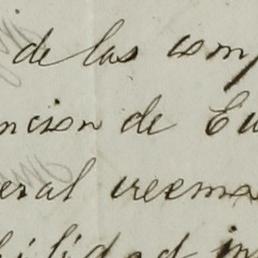 de las comp
ncion de Eu
eral creemo
bilidad in